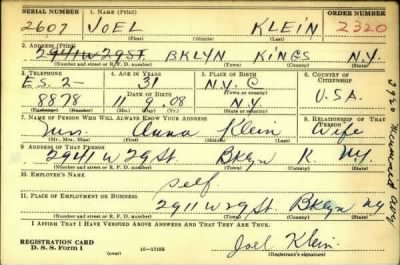 SERIAL NUMBER 1. NAME (Print) ORDER NUMBER
2607 JOEL KLEIN 2320
(First) (Middle) (Last)
2. ADDRESS (Print)
2941 W 29 ST BKLYN KINGS N.Y.
(Number and street or R. F. D. number) (Town) (County) (State)
3. TELEPHONE 4. AGE IN YEARS 5. PLACE OF BIRTH 6. COUNTRY OF CITIZENSHIP
ES 2- 31 N.Y.C
8878 DATE OF BIRTH N.Y. U.S.A.
11 9 08
(Exchange) (Number) (Mo.) (Day) (Yr.) (State or country)
7. NAME OF PERSON WHO WILL ALWAYS KNOW YOUR ADDRESS 8. RELATIONSHIP OF THAT PERSON
Mrs. Anna Klein Wife
(Mr., Mrs., Miss) (First) (Middle) (Last)
9. ADDRESS OF THAT PERSON
2941 W 29 St. Bklyn K. NY.
(Number and street or R. F. D. number) (Town) (County) (State)
10. EMPLOYER'S NAME
Self
11. PLACE OF EMPLOYMENT OR BUSINESS
2911 W 29 St. Bklyn NY
(Number and street or R. F. D. number) (Town) (County) (State)
I AFFIRM THAT I HAVE VERIFIED ABOVE ANSWERS AND THAT THEY ARE TRUE.
REGISTRATION CARD
D. S. S. Form 1 (over) 16-17105 Joel Klein
(Registrant's signature)